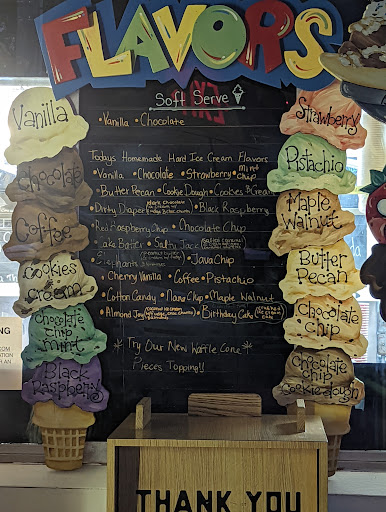 FLAVORS
Soft Serve
• Vanilla • Chocolate
Todays Homemade Hard Ice Cream Flavors
• Vanilla • Chocolate • Strawberry • mint chip
• Butter Pecan • Cookie Dough • Cookies n Cream
• Dirty Diaper • Black Raspberry
Red Raspberry Chip • Chocolate Chip
Cake Batter • Salty Jack
• Elephants • Java Chip
• Cherry Vanilla • Coffee • Pistachio
• Cotton Candy • Nana Chip • Maple Walnut
• Almond Joy • Birthday Cake
* Try Our New Waffle Cone *
Pieces Topping!!
Vanilla
Chocolate
Coffee
Cookies
n
Cream
Chocolate
chip
mint
Black
Raspberry
Strawberry
Pistachio
Maple
Walnut
Butter
Pecan
Chocolate
chip
Chocolate
chip
cookie dough
THANK YOU